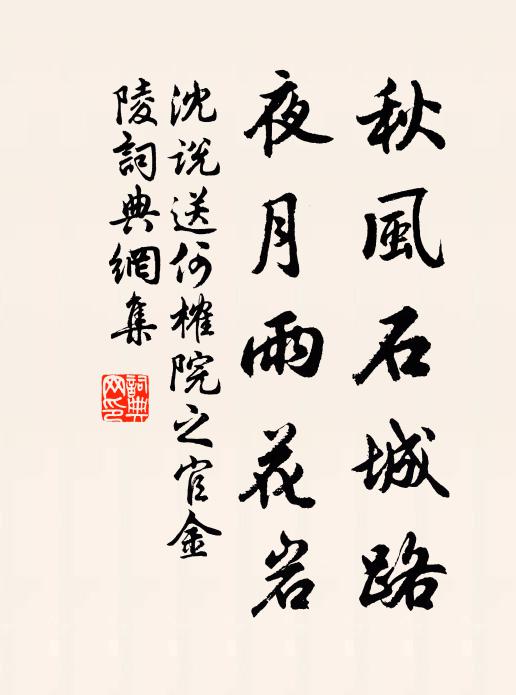 秋風石城路
夜月雨花岩
沈説送何榷院之官金
陵詞典網集
詞典网印